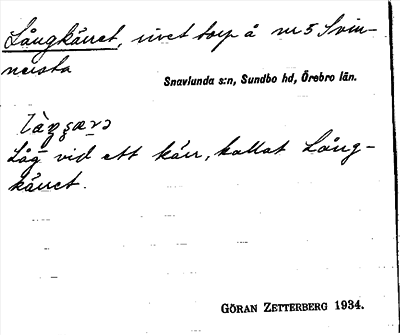 Långkärret, rivet torp å nr 5 Svin-
nersta
Snavlunda s:n, Sundbo hd, Örebro län.
Låg vid ett kärr, kallat Lång-
kärret.
GÖRAN ZETTERBERG 1934.